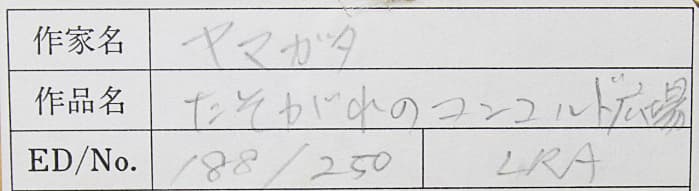 作家名 ヤマガタ
作品名 たそがれのコンコルド広場
ED/No. 188/250 LRA